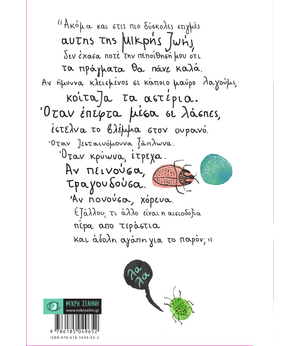 “Ακόμα και στις πιο δύσκολες στιγμές
αυτης της μικρής ζωής
δεν έχασα ποτέ την πεποίθησή μου ότι
τα πράγματα θα πάνε καλά.
Αν ήμουνα κλεισμένος σε κάποιο μαύρο λαγούμι,
κοίταζα τα αστέρια.
Όταν έπεφτα μέσα σε λάσπες,
έστελνα το βλέμμα στον ουρανό.
Όταν ζεσταινόμουνα ξάπλωνα.
Όταν κρύωνα, έτρεχα.
Αν πεινούσα,
τραγουδούσα.
Αν πονούσα, χόρευα.
Εξάλλου, τι άλλο είναι η αισιοδοξία
πέρα από τεράστια
και άδολη αγάπη για το παρόν;”
λα
λα
ΜΙΚΡΗ ΣΕΛΗΝΗ
www.mikriselini.gr
9 786185 049652